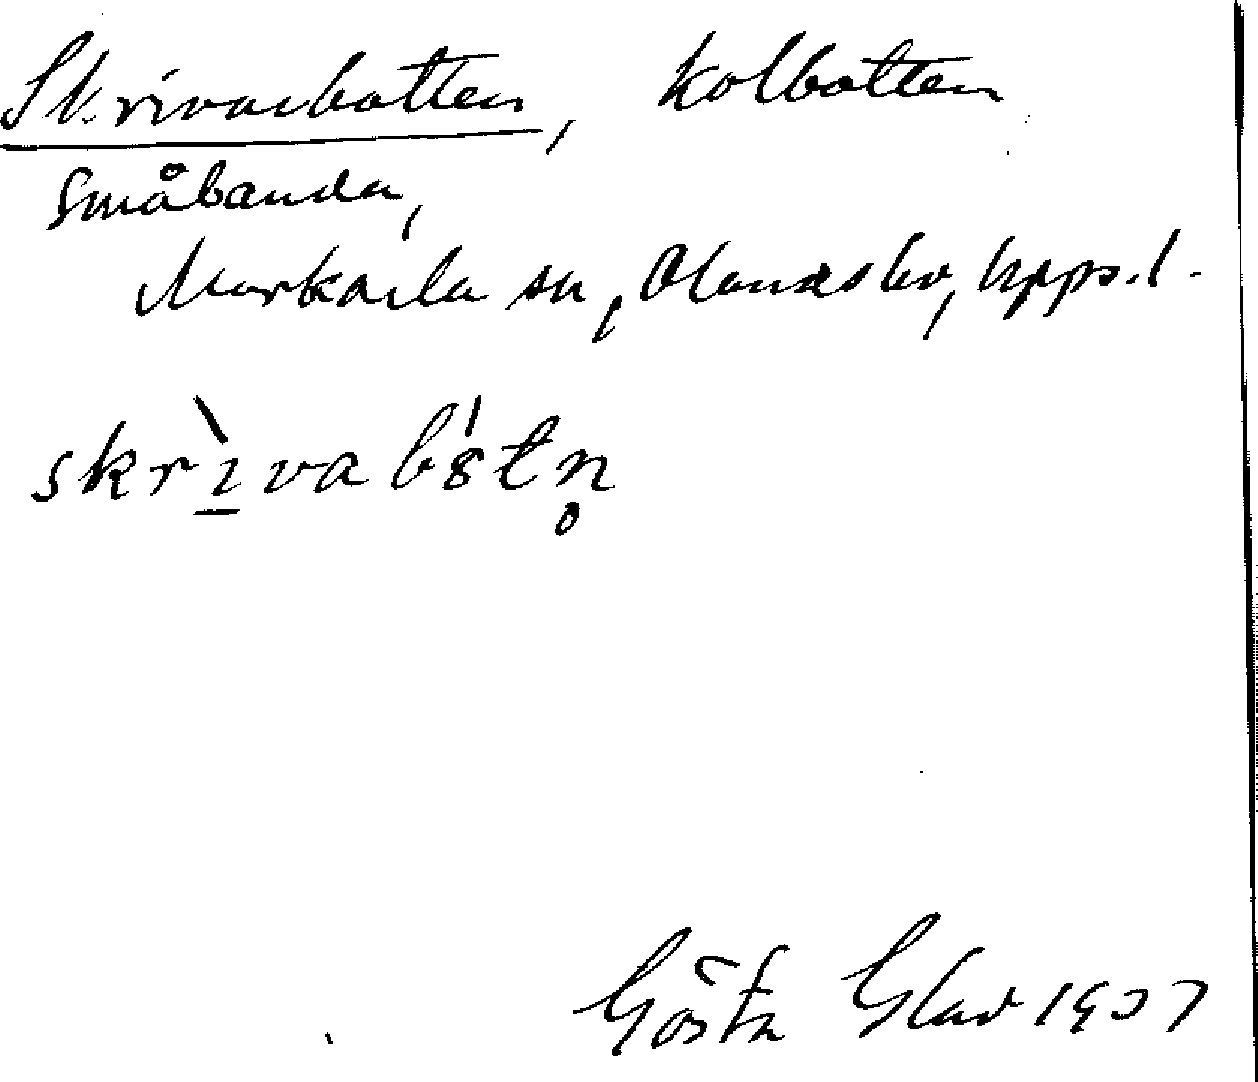 Skrivarbotten, Kolbotten
Småbanda,
Markarla sn, Olands hd, Upps. l.
skrìvab8́tn̥
Gösta Glav 1937